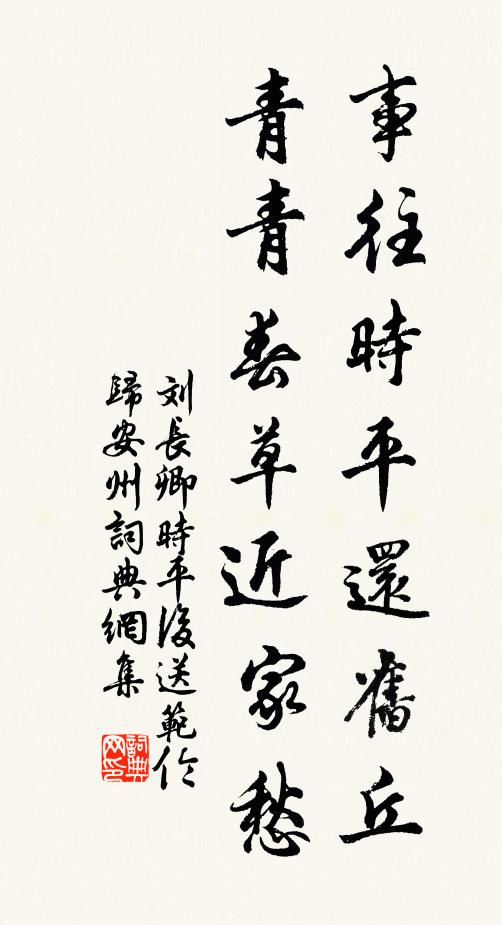 事往時平還舊丘
青青春草近家愁
刘長卿時平後送範伦
歸安州詞典網集
詞典网印